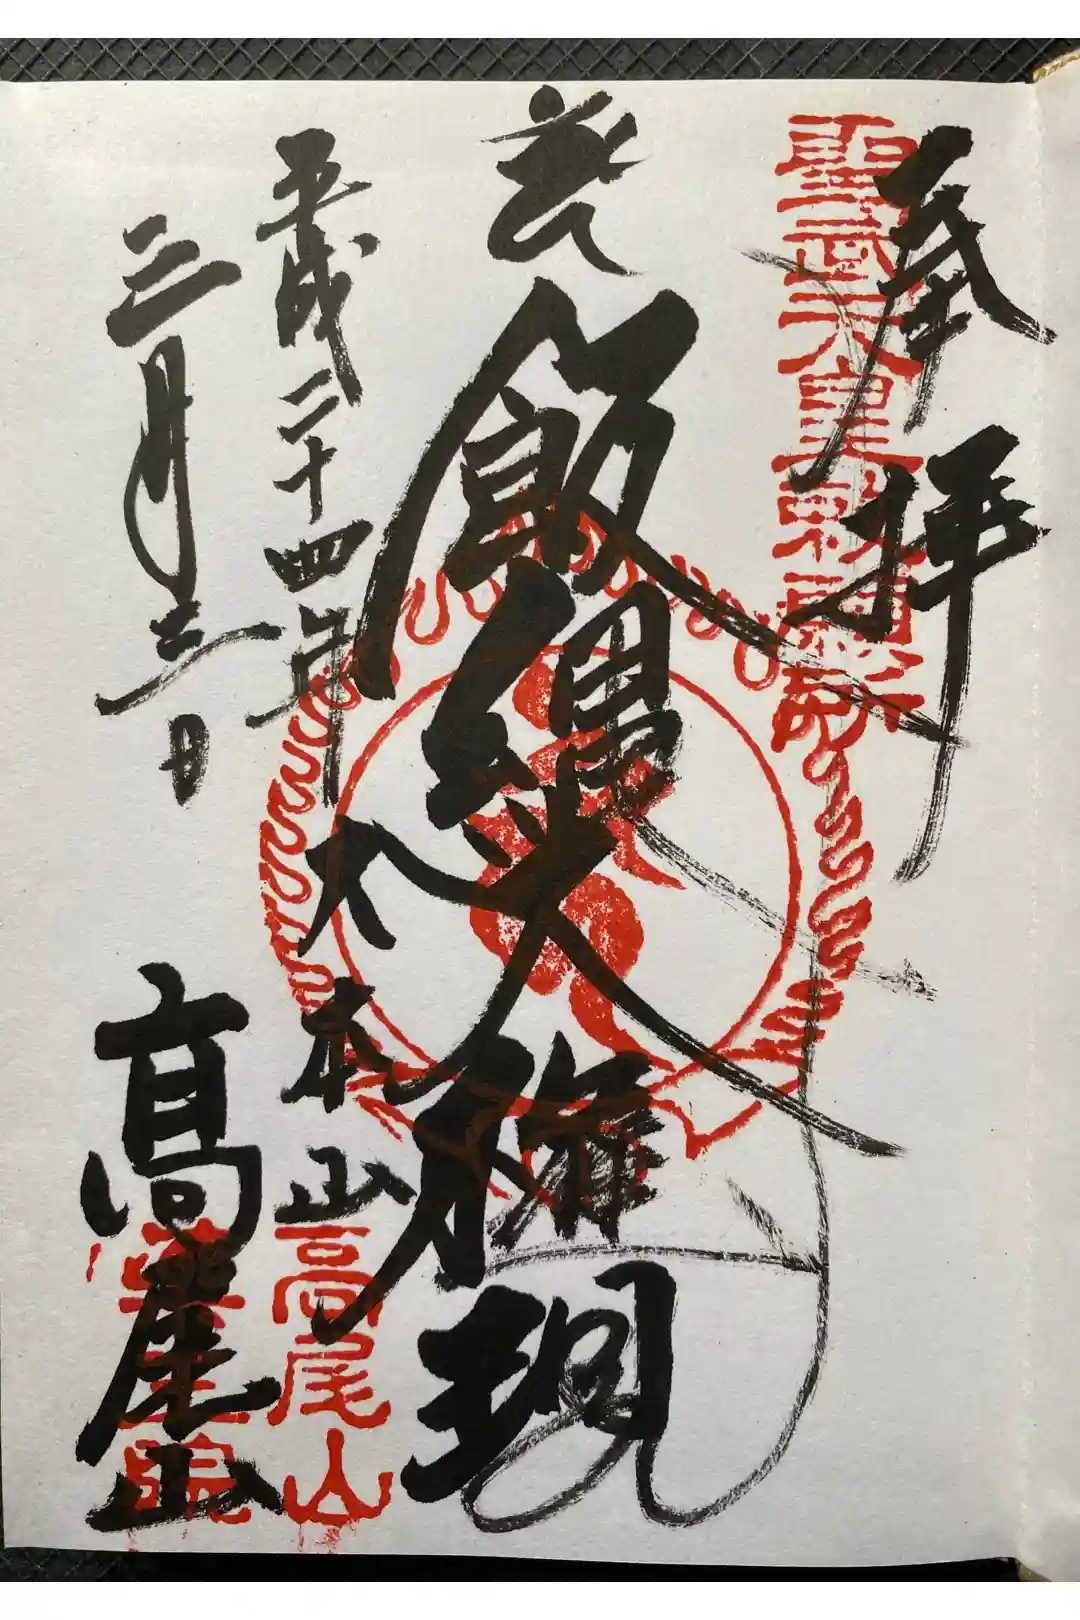 奉拝
聖武天皇勅願所
飯縄大権現
平成二十四年
三月三日
大本山
高尾山
高尾山
薬王院